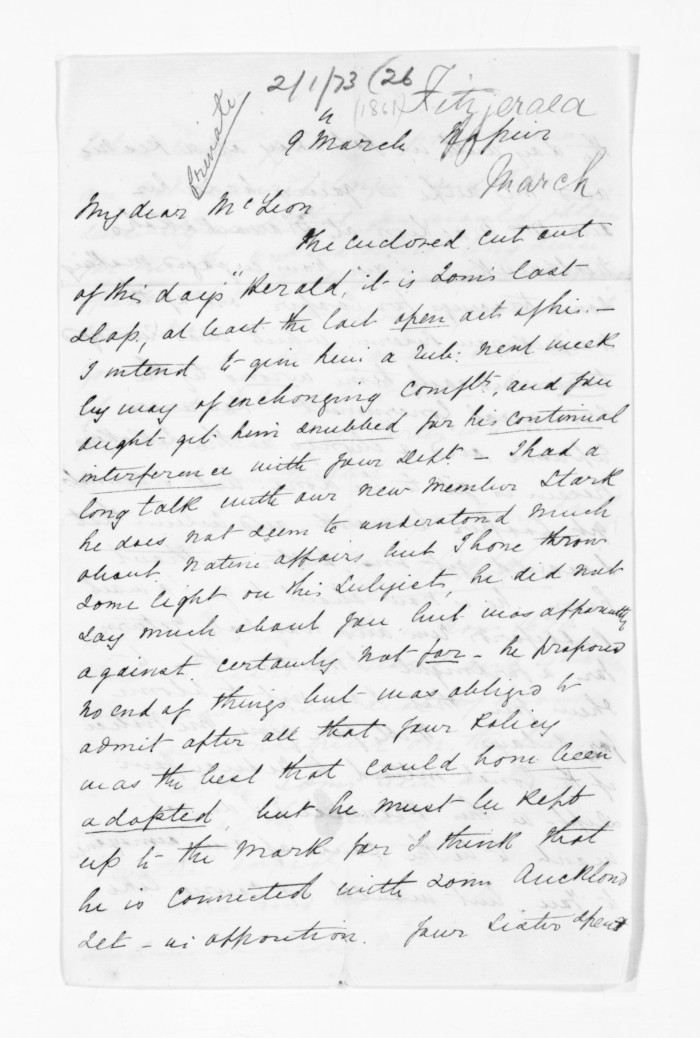 2/1/73 (26
(1861) Fitzgerald
Private
9th March Napier
March
My dear McLeon
The enclosed cut out
of this day's "Herald", it is Tom's last
slap, at least the last open act of his. —
I intend to give him a rub: next week
by way of exchanging complts, and you
ought get him snubbed for his continual
interference with your Dept. — I had a
long talk with our new member Stark
he does not seem to understand much
about native affairs but I have thrown
some light on this subject, he did not
say much about you but was apparently
against. certainly not for — he proposed
no end of things but was obliged to
admit after all that your Policy
was the best that could have been
adopted, but he must be kept
up to the mark for I think that
he is connected with some Auckland
set — in opposition. Your Sister spent